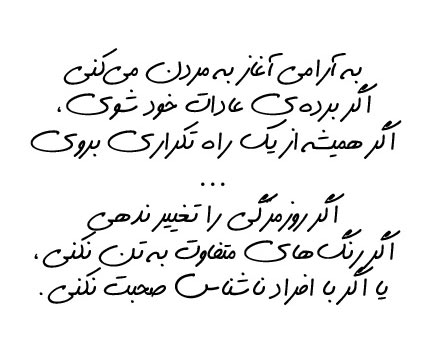 به آرامی آغاز به مردن می‌کنی
اگر برده‌ی عادات خود شوی،
اگر همیشه از یک راه تکراری بروی
...
اگر روزمرگی را تغییر ندهی
اگر رنگ‌های متفاوت به تن نکنی،
یا اگر با افراد ناشناس صحبت نکنی.